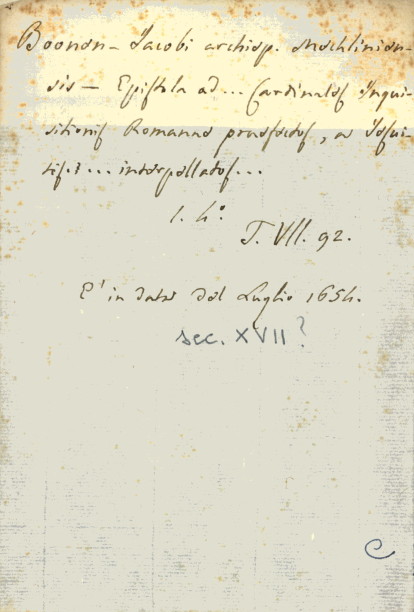 Boonen – Jacobi archiep. Mechlinien-
sis – Epistola ad... Cardinales Inqui-
sitionis Romanae praefectos, a Jesui-
tis... interpellatos...
T. VII. 92.
E' in data del Luglio 1654.
sec. XVII?
C